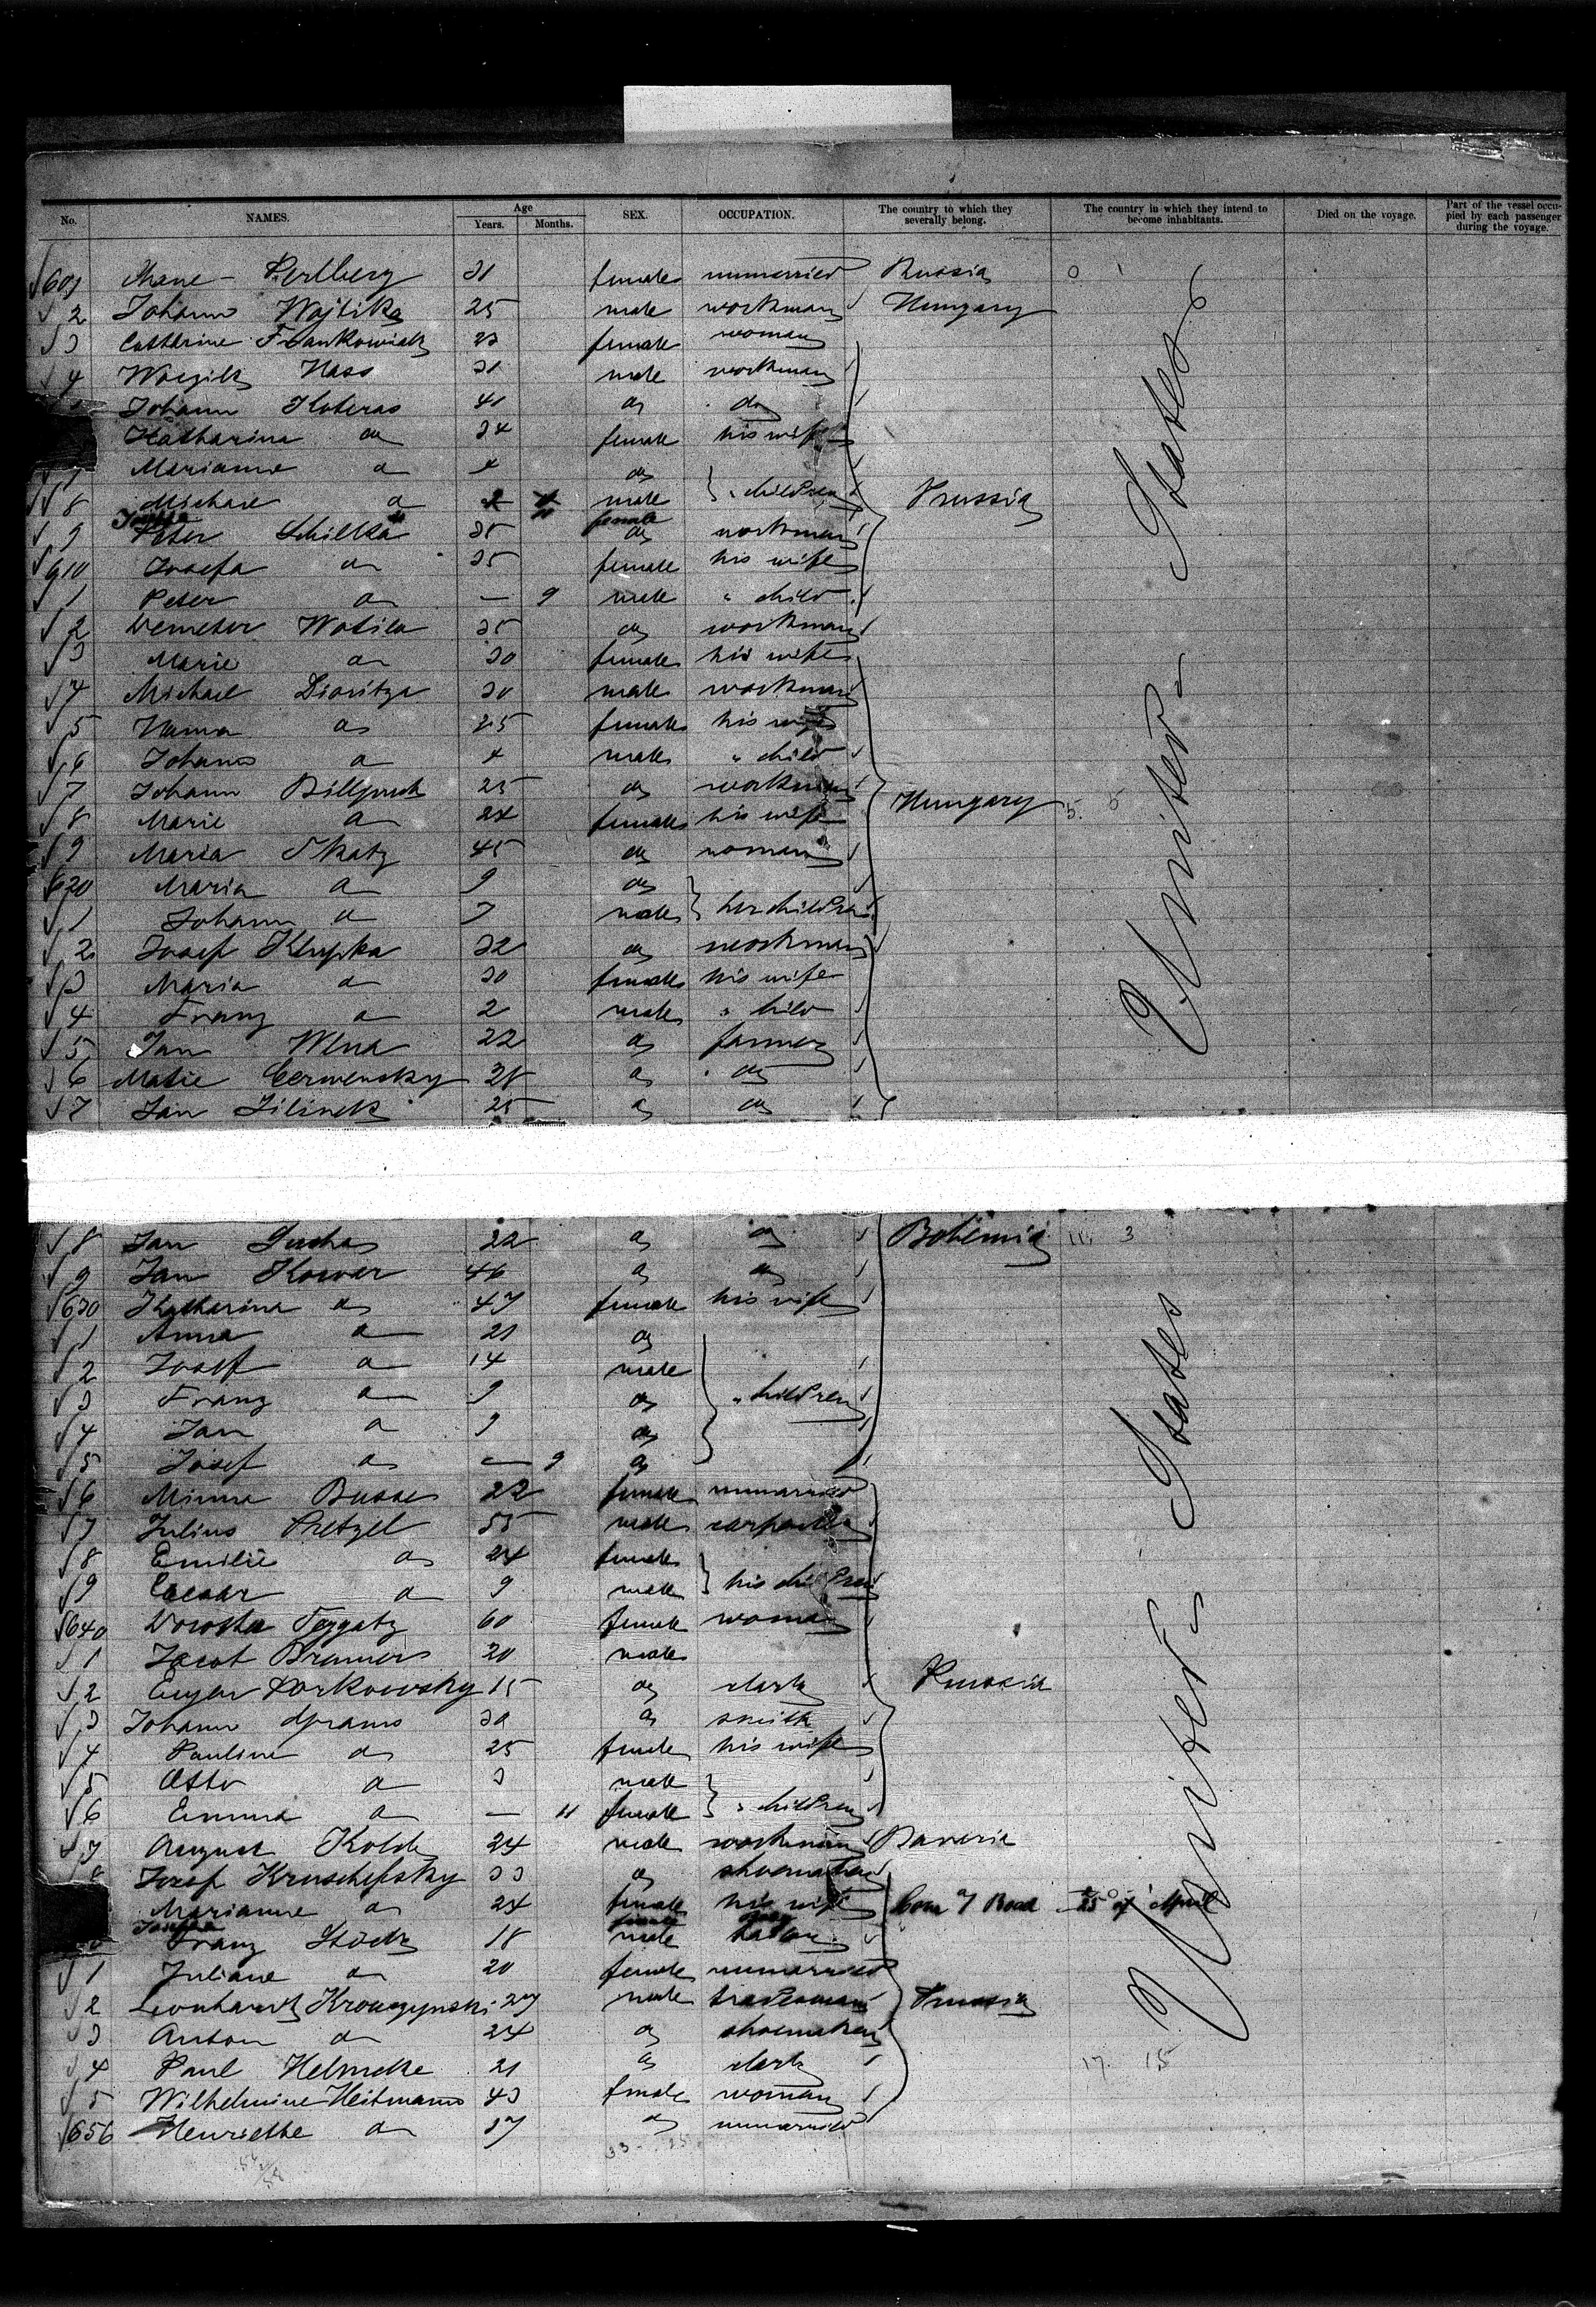 No. NAMES. Age Years. Months. SEX. OCCUPATION. The country to which they severally belong. The country in which they intend to become inhabitants. Died on the voyage. Part of the vessel occupied by each passenger during the voyage.
601 Perlberg 21 female unmarried Russia
2 Johann Wojtika 25 male workman Hungary
3 Catharine Frankowiak 23 female woman
4 Hass 31 male workman
Johann Koteras 41 do do
Katharina do 34 female his wife
7 Marianne do 4 do
8 Michael do male " children Prussia
9 Peter Schilka 35 female do workman
610 Josefa do 35 female his wife
1 Peter do — 9 male " child
2 Demeter Wotila 35 do workman
3 Marie do 30 female his wife
4 Michael Dioritza 30 male workman
5 Hanna do 25 female his wife
6 Johann do 4 male " child
7 Johann 25 do workman
8 Marie do 24 female his wife Hungary
9 Maria Skatz 45 do woman
620 Maria do 9 do
1 Johann do 7 male her children
2 Josef Klupka 32 do workman
3 Maria do 30 female his wife
4 Franz do 2 male " child
5 Jan 22 do farmer
6 Matie Cerwensky 28 do do
7 Jan Jilinek 25 do do
8 Jan Suchas 22 do do Bohemia 3
9 Jan Kowar 46 do do
630 Katharina do 47 female his wife
1 Anna do 21 do
2 Josef do 14 male
3 Franz do 9 do " children
4 Jan do 9 do
5 Josef do — 9 do
6 Minna Busse 22 female unmarried
7 Julius Pretzel 55 male carpenter
8 Emilie do 24 female
9 Caesar do 9 male his children
640 Dorothea Teggatz 60 female woman
1 Jacob Bremers 20 male
2 Eugen Borkowsky 15 do clerk Prussia
3 Johann Abrams 30 do smith
4 Pauline do 25 female his wife
5 Otto do 3 male
6 Emma do — 11 female " children
7 August Kolde 24 male workman Bavaria
8 Josef Kruschefsky 33 do shoemaker
Marianne do 24 female his wife of April
Franz Stock 18 male
1 Juliane do 20 female unmarried
2 Leonhardt Kronzynski 27 male tradesman Prussia
3 Anton do 24 do shoemaker
4 Paul Helmcke 21 do clerk 17. 15
5 Wilhelmine Heitmann 43 female woman
656 Henriette do 17 do unmarried
United States
United States